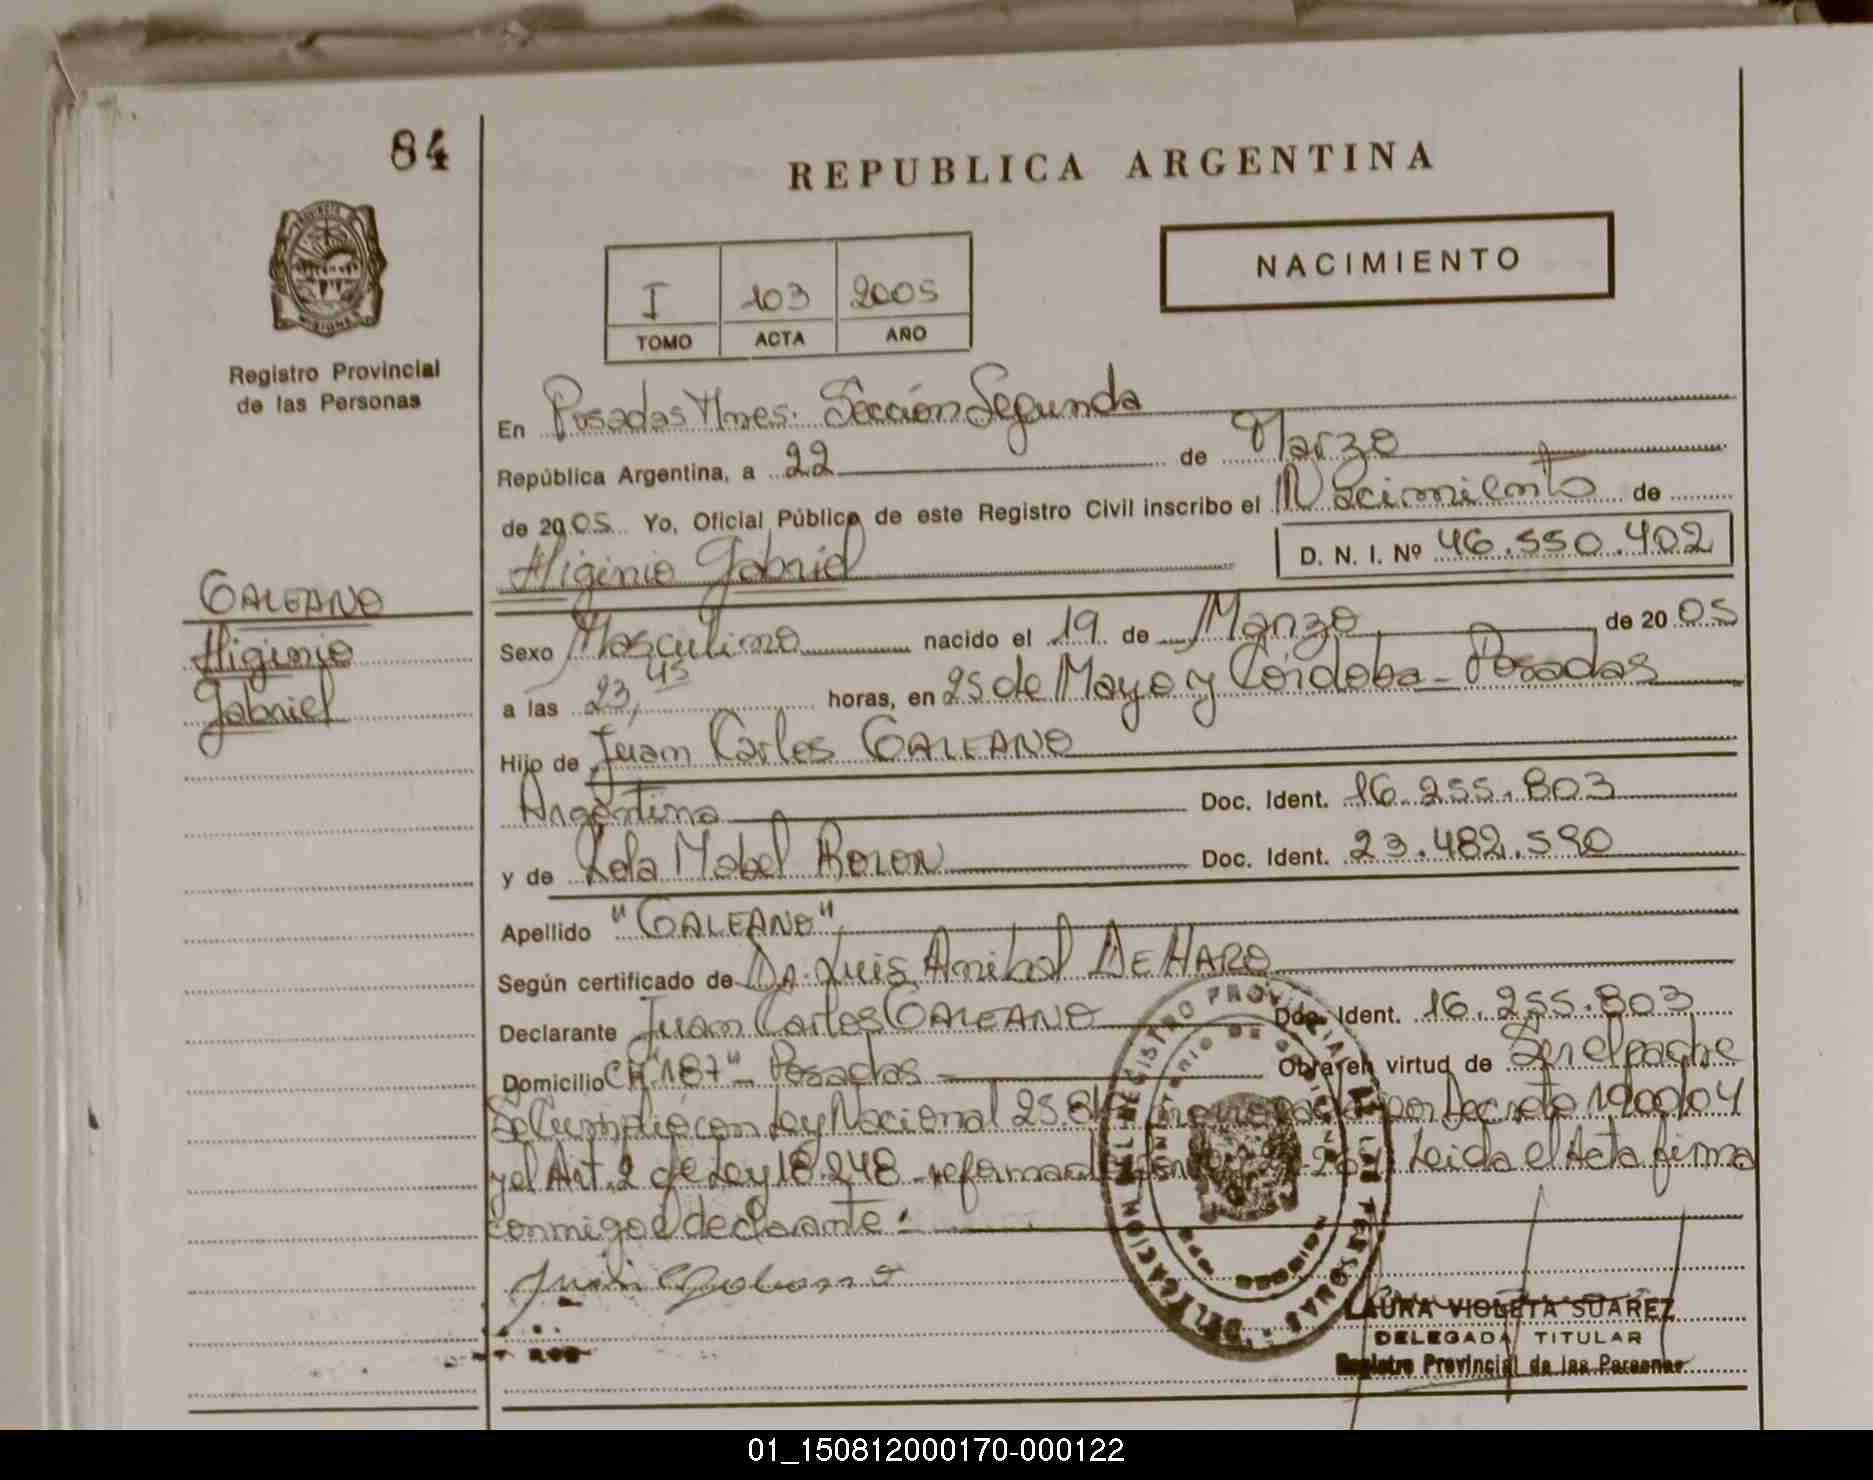 84
REPUBLICA ARGENTINA
NACIMIENTO
I 103 2005
TOMO ACTA AÑO
Registro Provincial
de las Personas
En Posadas Mnes. Sección Segunda
República Argentina, a 22 de Marzo
de 2005 Yo, Oficial Público de este Registro Civil inscribo el Nacimiento de
Higinio Gabriel D. N. I. Nº 46.550.402
GALEANO
Higinio
Gabriel
Sexo Masculino nacido el 19 de Marzo de 2005
a las 23,45 horas, en 25 de Mayo y Córdoba - Posadas
Hijo de Juan Carlos GALEANO
Argentino Doc. Ident. 16.255.803
y de Lola Mabel Doc. Ident. 23.482.590
Apellido "GALEANO"
Según certificado de Dr. Luis Anibal DE HARO
Declarante Juan Carlos GALEANO Doc. Ident. 16.255.803
Domicilio CH "187" - Posadas Obra en virtud de Ser el padre
Se Cumplió con Ley Nacional por Decreto 1900/04
y el Art. 2 de Ley 18.248 - Leida el Acta firma
conmigo el declarante:
DELEGACION DEL REGISTRO PROVINCIAL DE LAS PERSONAS
LAURA VIOLETA SUAREZ
DELEGADA TITULAR
Registro Provincial de las Personas
01_150812000170-000122